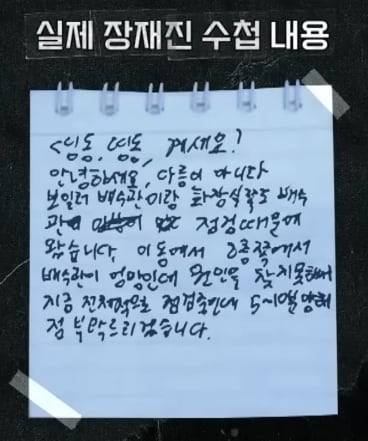 실제 장재진 수첩 내용
<띵동, 띵동, 계세요?
안녕하세요, 다름이 아니라
보일러 배수관이랑 화장실쪽도 배수
관 점검때문에
왔습니다. 이 동에서 3층쪽에서
배수관이 엉망인데 원인을 찾지못해서
지금 전체적으로 점검중인데 5~10분 양해
점 부탁드리겠습니다.